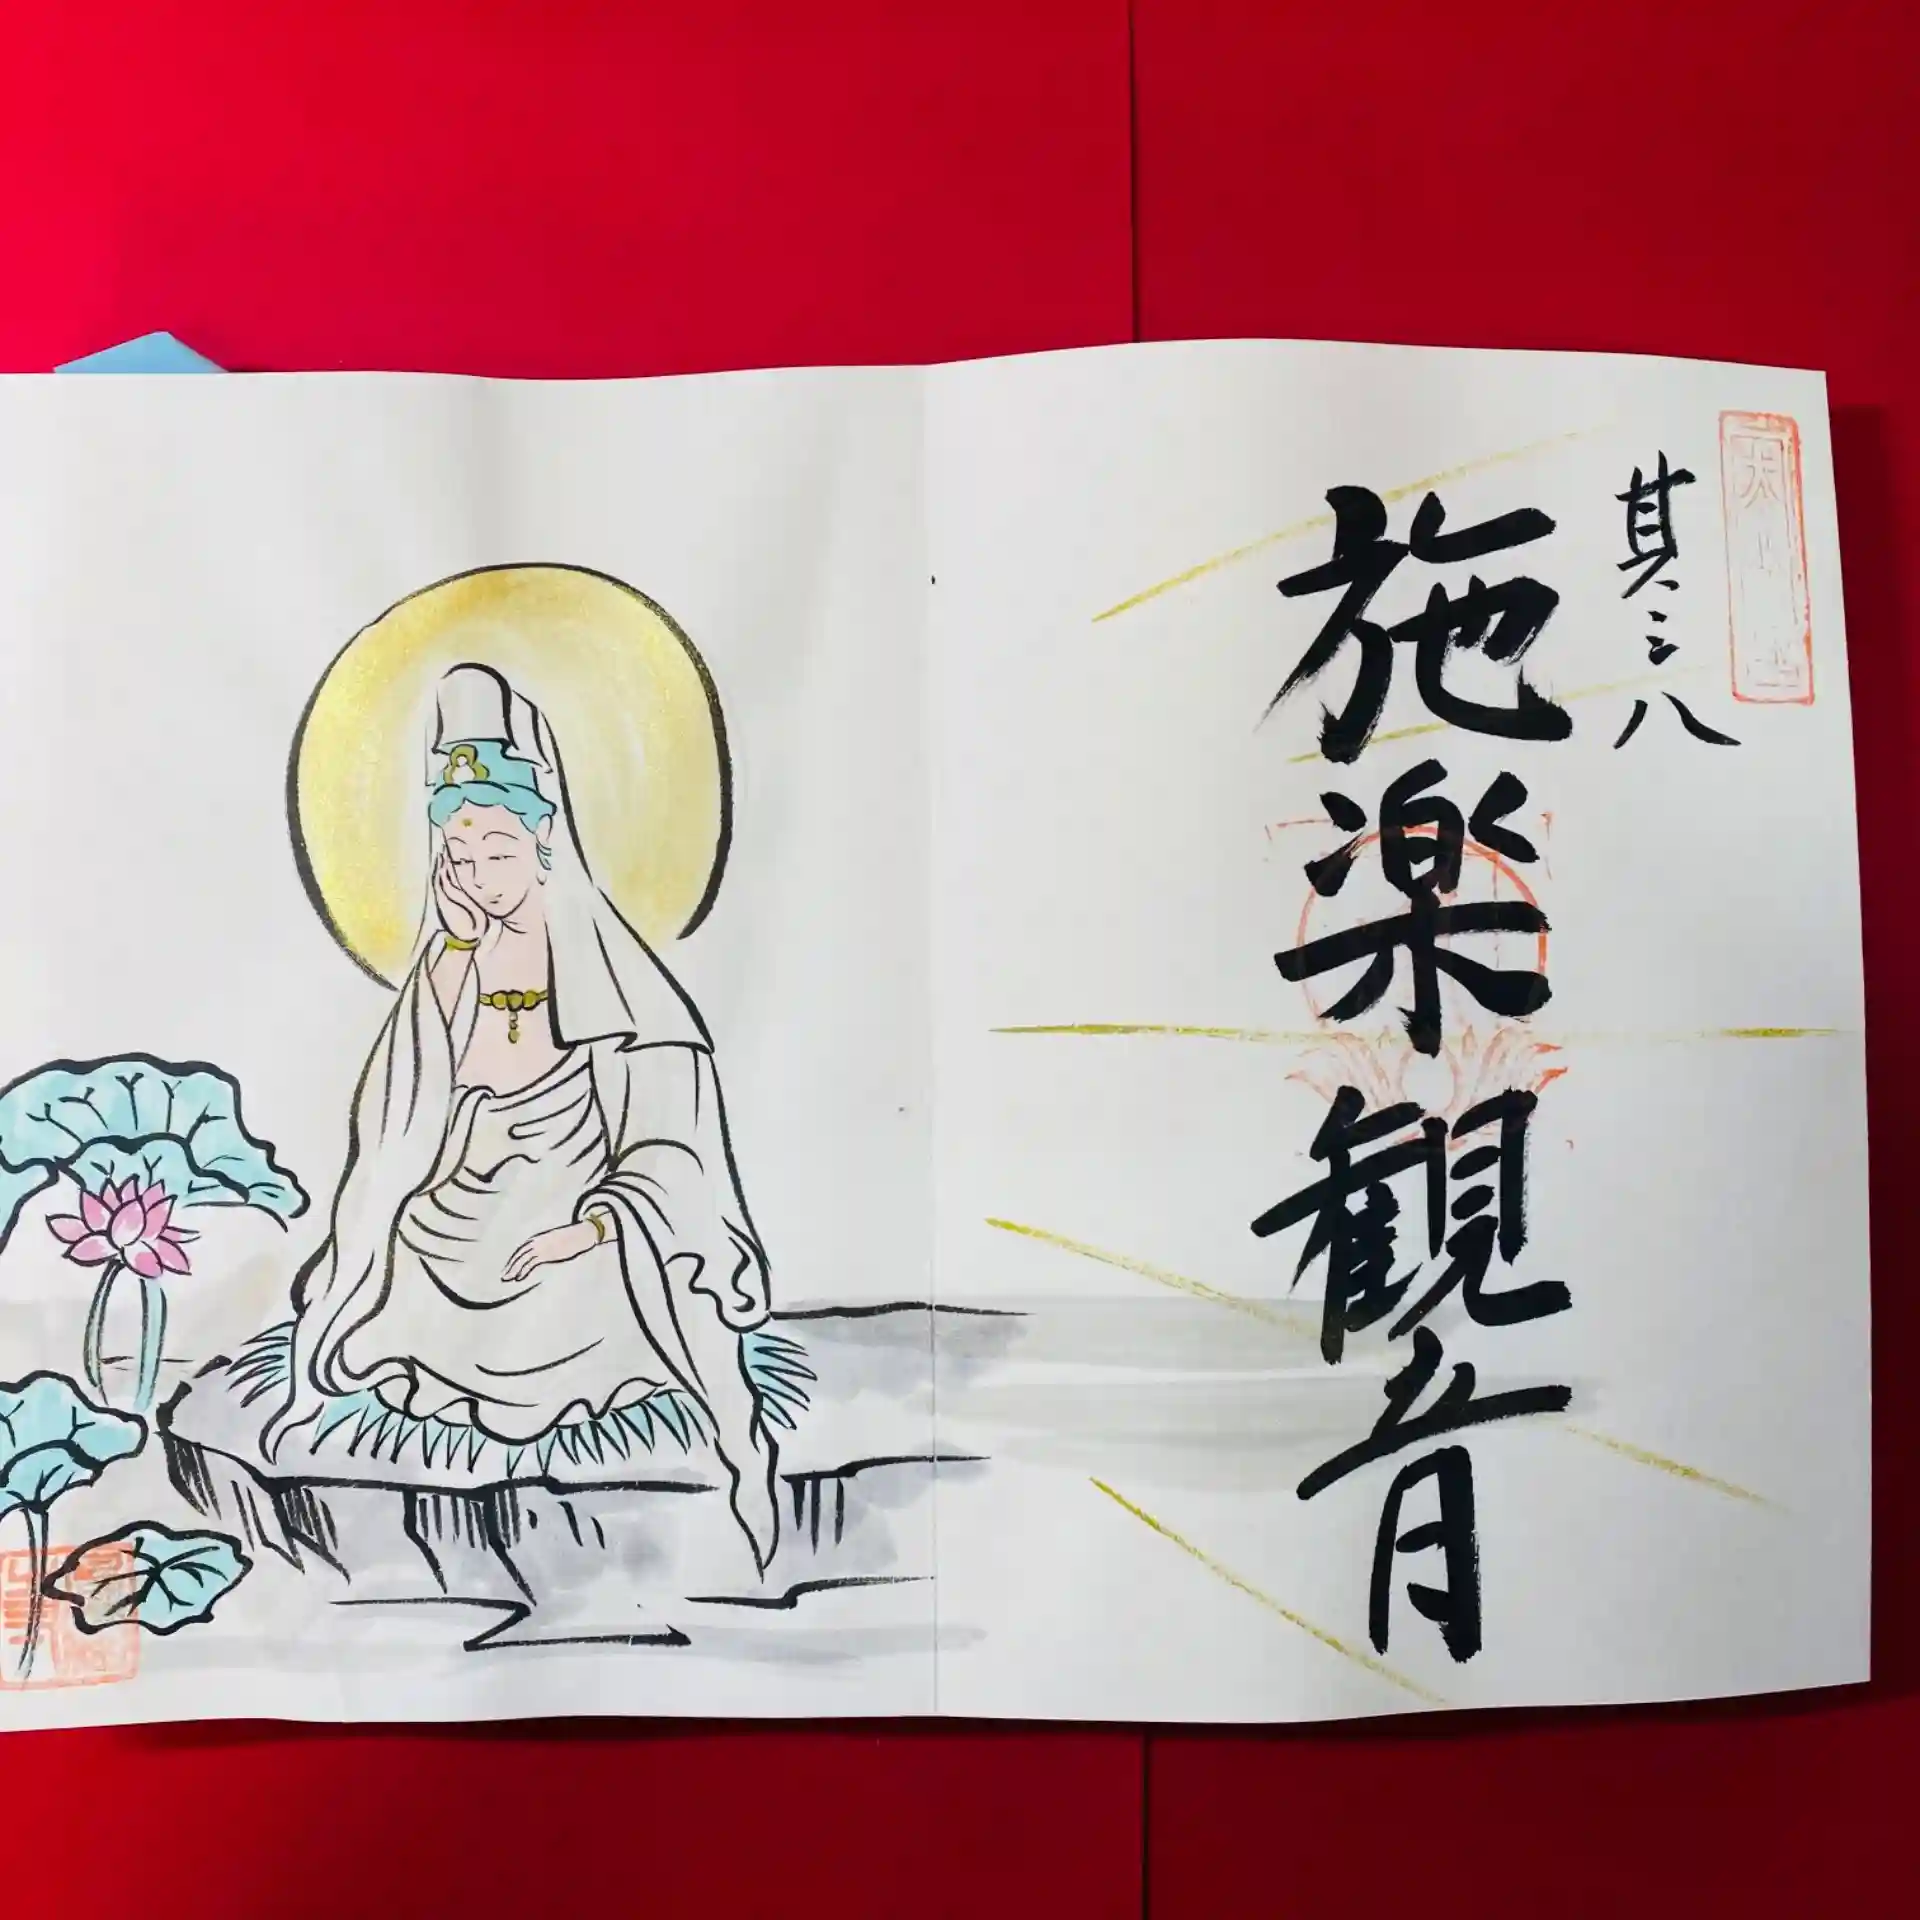 其ノ三八
施楽観音